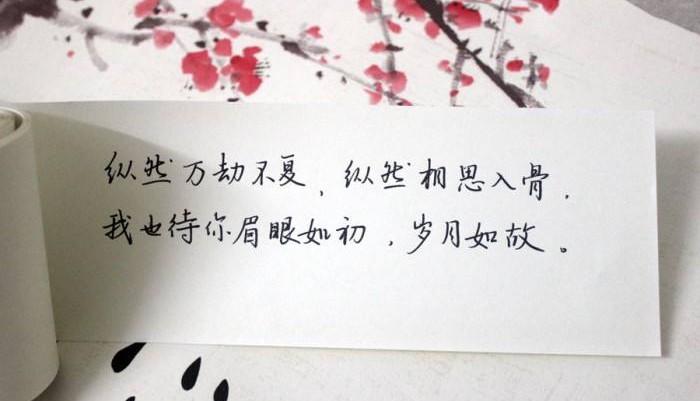 纵然万劫不复,纵然相思入骨,
我也待你眉眼如初,岁月如故。